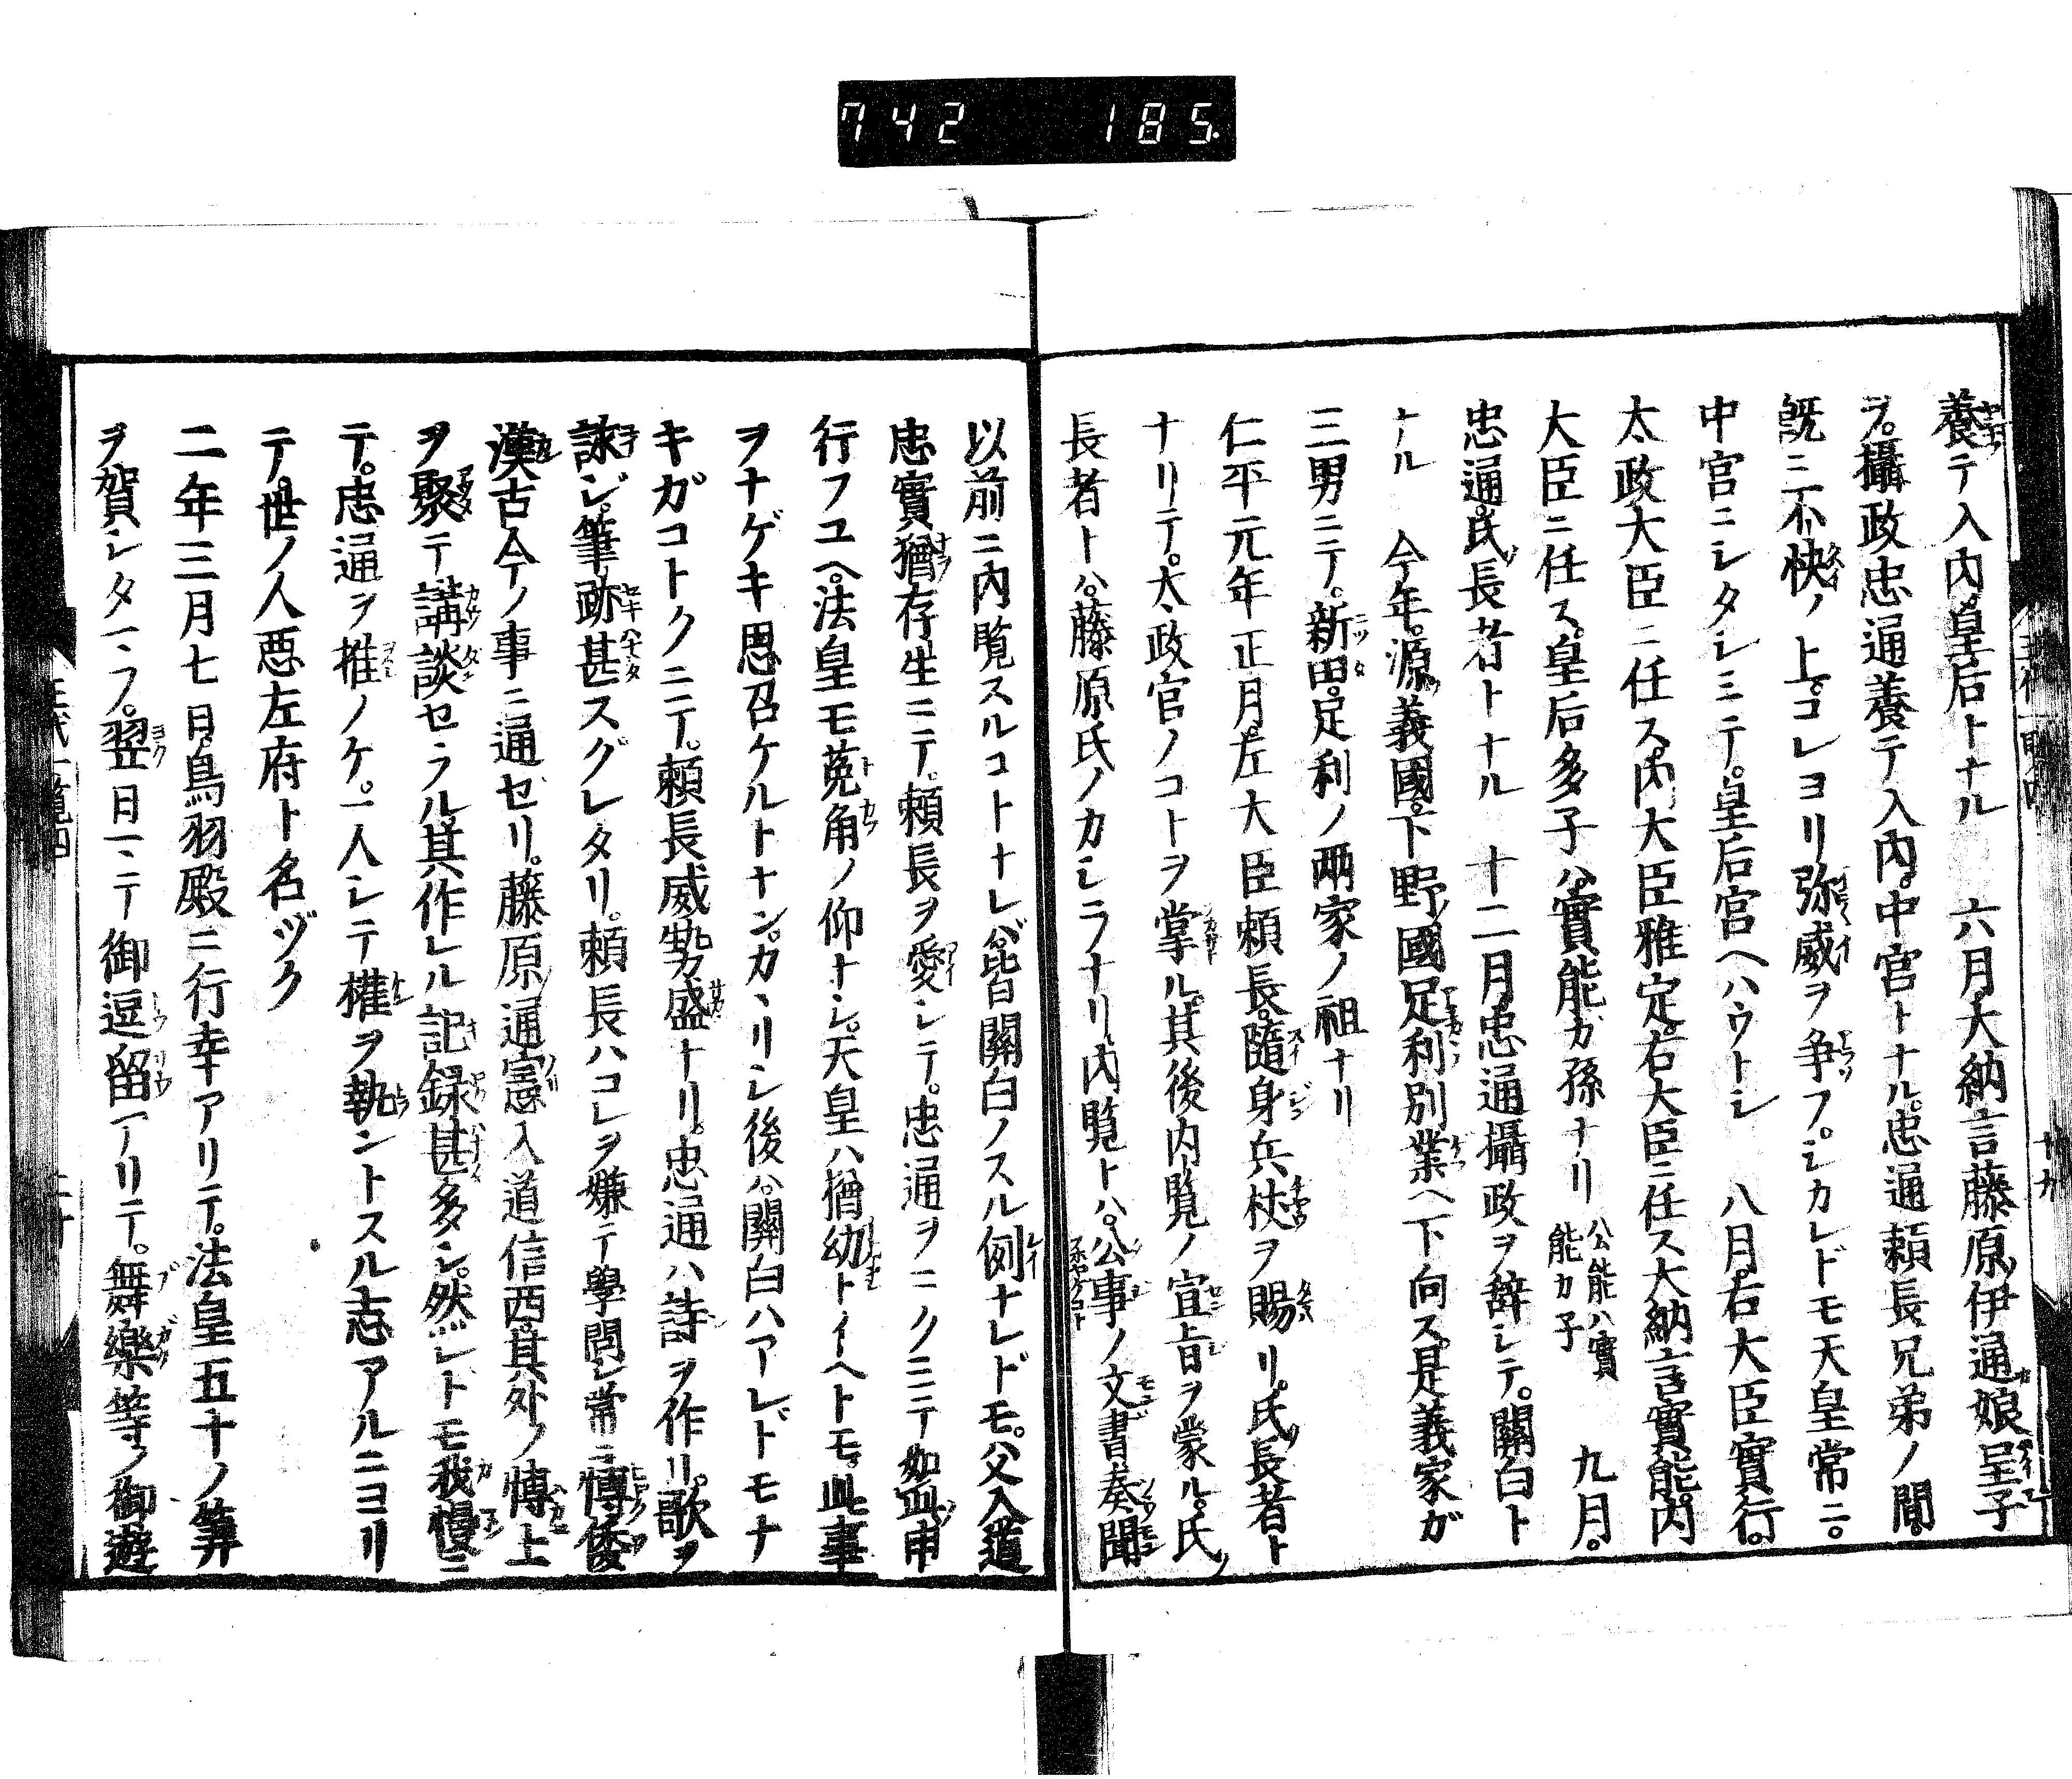 742 185
養テ入内。皇后トナル 六月。大納言藤原ノ伊通ガ娘呈子
ヲ。攝政忠通養テ入内。中宮トナル。忠通頼長兄弟ノ間。
既ニ不快ノ上。コレヨリ弥威ヲ争フ。シカレドモ天皇常ニ。
中宮ニシタシミテ。皇后宮ヘハウトシ 八月。右大臣實行。
太政大臣ニ任ス。内大臣雅定。右大臣ニ任ス大納言實能。内
大臣ニ任ス。皇后多子ハ。實能ガ孫ナリ 公能ハ實能カ子 九月。
忠通。氏ノ長者トナル 十二月。忠通攝政ヲ辞シテ。關白ト
ナル 今年。源ノ義國。下野ノ國足利別業ヘ下向ス。是義家ガ
三男ニテ。新田。足利ノ兩家ノ祖ナリ
仁平元年正月。左大臣頼長。隨身兵杖ヲ賜リ。氏ノ長者ト
ナリテ。太政官ノコトヲ掌ル。其後内覽ノ宣旨ヲ蒙ル。氏ノ
長者トハ。藤原氏ノカシラナリ。内覽トハ。公事ノ文書奏聞
以前ニ内覽スルコトナレバ。皆關白ノスル例ナレドモ。父入道
忠實猶存生ニテ。頼長ヲ愛シテ。忠通ヲニクミテ如此申
行フユヘ。法皇モ菟角ノ仰ナシ。天皇ハ猶幼トイヘトモ。此事
ヲナゲキ思召ケルトナン。カヽリシ後ハ。關白ハアレドモナ
キガコトクニテ。頼長威勢盛ナリ。忠通ハ詩ヲ作リ。歌ヲ
詠ジ。筆跡甚スグレタリ。頼長ハコレヲ嫌テ學問シ常ニ博倭
漢古今ノ事ニ通セリ。藤原ノ通憲入道信西。其外ノ博士
ヲ聚テ講談セラル。其作レル記録甚多シ。然レトモ我慢ニ
テ。忠通ヲ推ノケ。一人シテ權ヲ執ントスル志アルニヨリ
テ。世ノ人惡左府ト名ヅク
二年三月七日。鳥羽殿ニ行幸アリテ。法皇五十ノ筭
ヲ賀シタマフ。翌日マテ御逗留アリテ。舞樂等ノ御遊